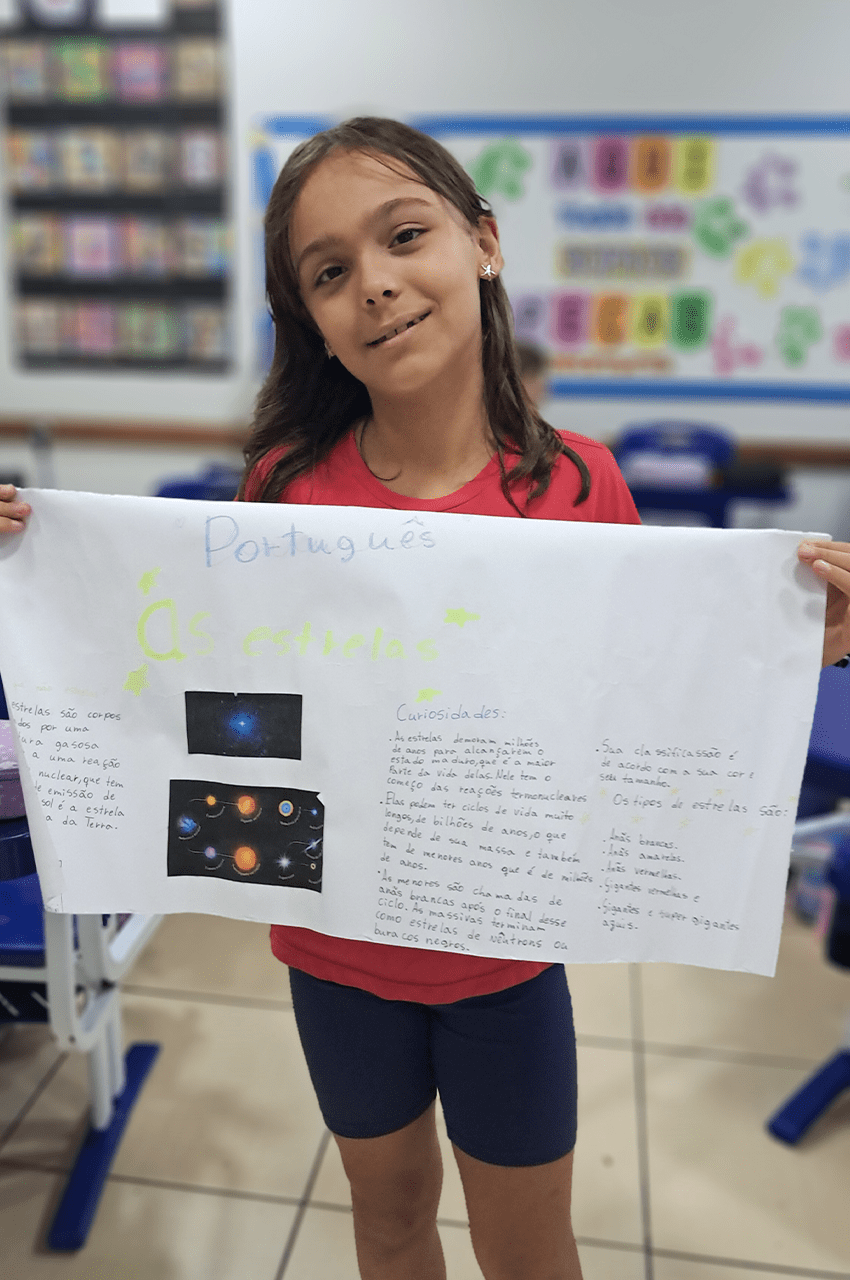 Português
As estrelas
estrelas são corpos
dos por uma
gasosa
a uma reação
nuclear, que tem
de emissão de
sol é a estrela
a da Terra.
Curiosidades:
• As estrelas demoram milhões
de anos para alcançarem o
estado maduro, que é a maior
Parte da vida delas. Nele tem o
começo das reações termonucleares
• Elas podem ter ciclos de vida muito
longos, de bilhões de anos, o que
depende de sua massa e também
tem de menores anos que é de milhões
de anos.
• As menores são chamadas de
anãs brancas após o final desse
ciclo. As massivas terminam
como estrelas de Nêutrons ou
buracos negros.
• Sua classificassão é
de acordo com a sua cor e
seu tamanho.
Os tipos de estrelas são:
• Anãs brancas.
• Anãs amarelas.
• Anãs vermelhas.
• Gigantes vermelhas e
• Gigantes e super gigantes
azuis.